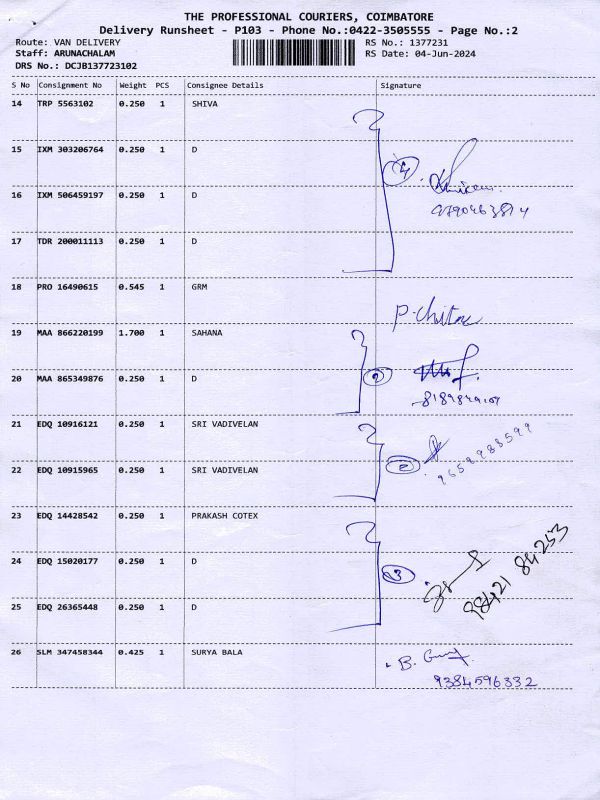 THE PROFESSIONAL COURIERS, COIMBATORE
Delivery Runsheet - P103 - Phone No.:0422-3505555 - Page No.:2
Route: VAN DELIVERY RS No.: 1377231
Staff: ARUNACHALAM RS Date: 04-Jun-2024
DRS No.: DCJB137723102
S No Consignment No Weight PCS Consignee Details Signature
14 TRP 5563102 0.250 1 SHIVA
15 IXM 303206764 0.250 1 D
4
16 IXM 506459197 0.250 1 D
17 TDR 200011113 0.250 1 D
18 PRO 16490615 0.545 1 GRM
P. Chitra
19 MAA 866220199 1.700 1 SAHANA
20 MAA 865349876 0.250 1 D
2
21 EDQ 10916121 0.250 1 SRI VADIVELAN
9658988599
22 EDQ 10915965 0.250 1 SRI VADIVELAN
2
23 EDQ 14428542 0.250 1 PRAKASH COTEX
98421 84253
24 EDQ 15020177 0.250 1 D
3
25 EDQ 26365448 0.250 1 D
26 SLM 347458344 0.425 1 SURYA BALA
B.
9384596332